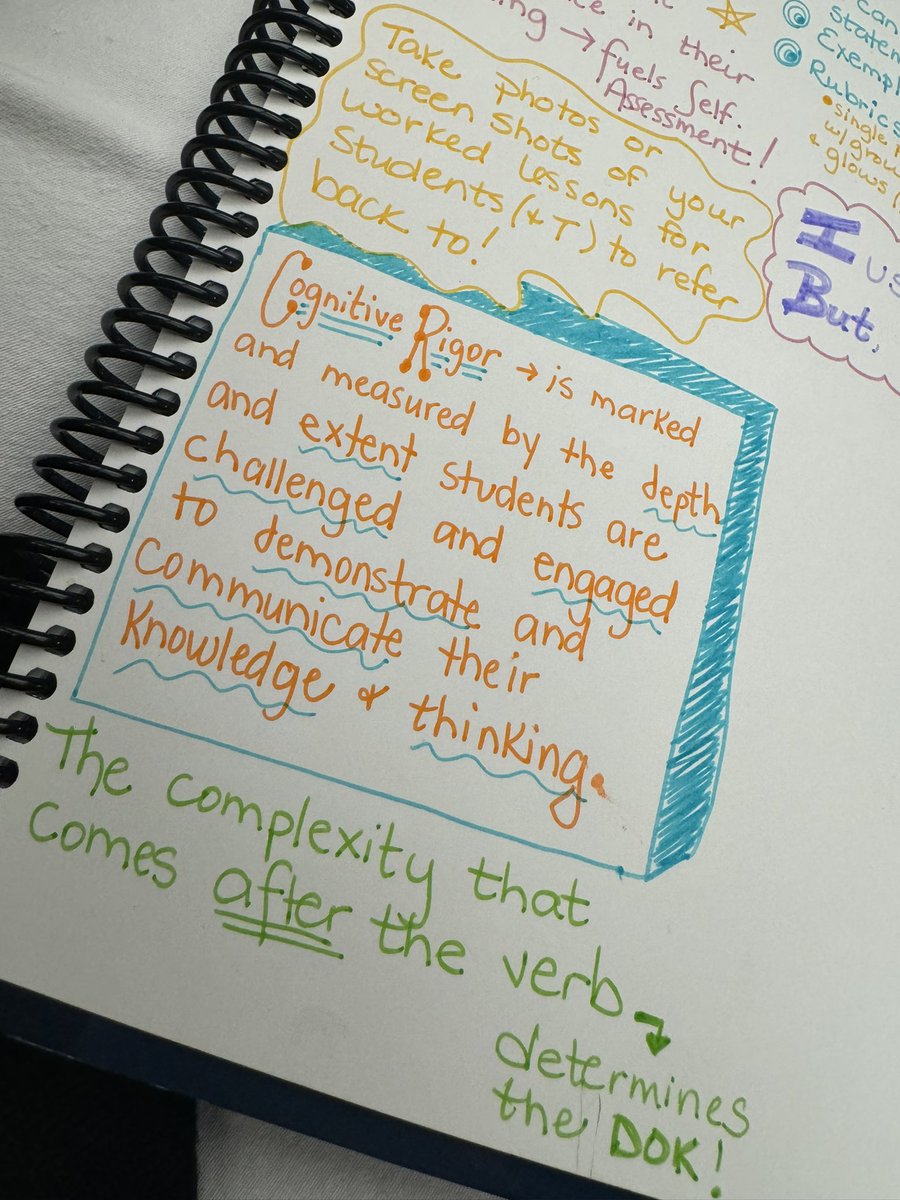 in their
→ fuels Self.
Assessment!
Rubrics
Take photos or
screen shots of your
worked lessons for
students (& T) to refer
back to!
I
But.
Cognitive Rigor → is marked
and measured by the depth
and extent students are
challenged and engaged
to demonstrate and
communicate their
Knowledge & thinking.
The complexity that
comes after the verb
determines
the DOK!